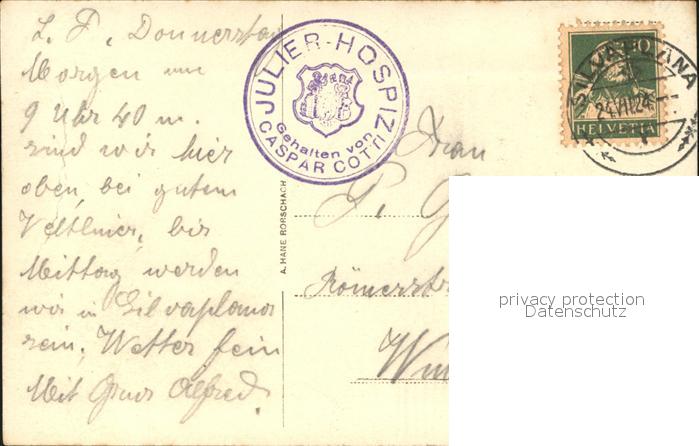 L. F. Donnerstag
Morgen um
9 Uhr 40 m.
sind wir hier
oben bei gutem
Veltliner, bis
Mittag werden
wir in Silvaplana
sein. Wetter fein
Mit Gruss Alfred
JULIER-HOSPIZ
Gehalten von
CASPAR COTTI
A. HANE RORSCHACH
10
HELVETIA
SILVAPLANA
24.VII.24
Frau
P. G
Römerstr
Win
privacy protection
Datenschutz